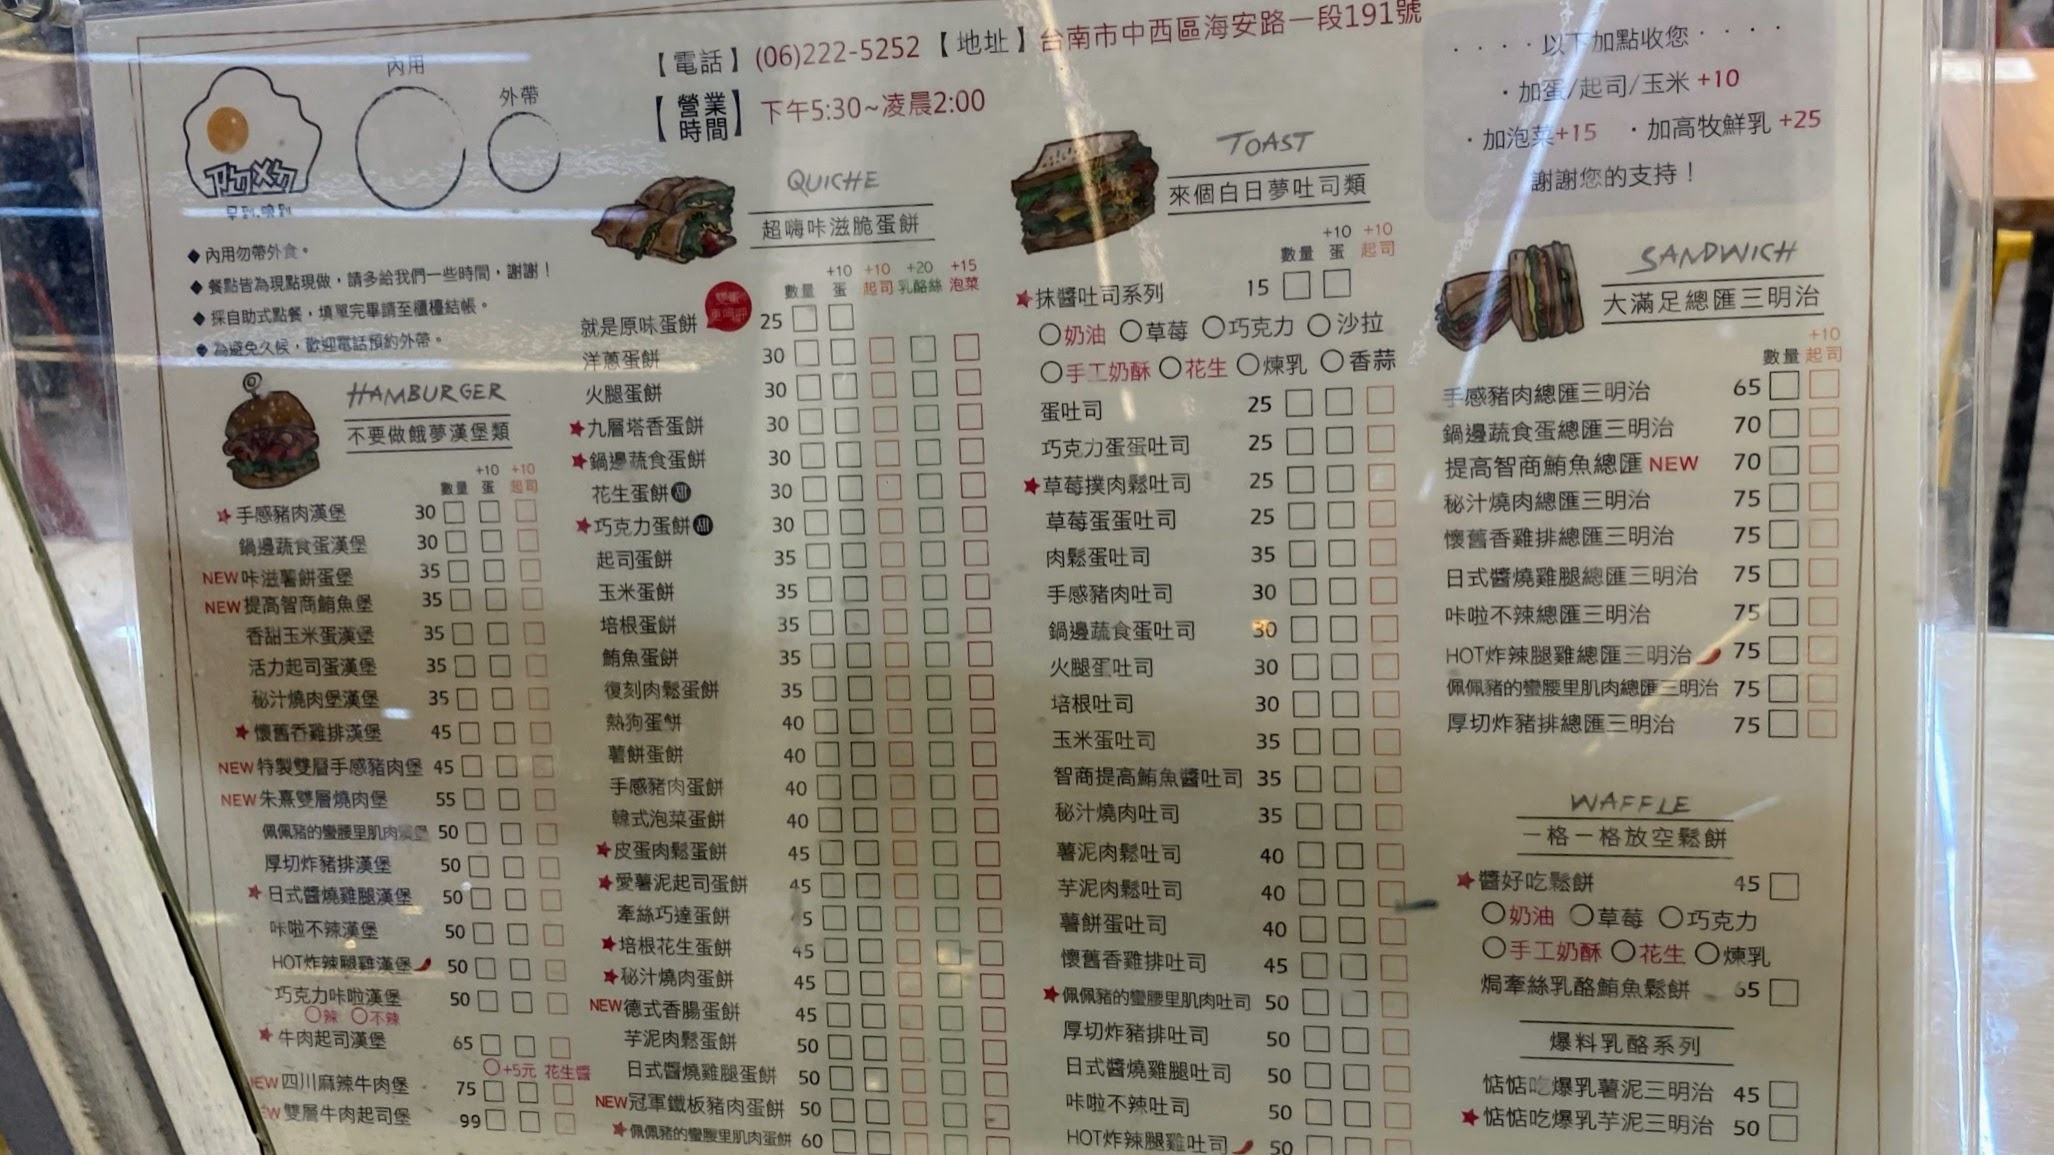 【電話】(06)222-5252【地址】台南市中西區海安路一段191號
【營業時間】下午5:30~凌晨2:00
內用
外帶
早到.晚到
◆內用勿帶外食。
◆餐點皆為現點現做,請多給我們一些時間,謝謝!
◆採自助式點餐,填單完畢請至櫃檯結帳。
◆為避免久候,歡迎電話預約外帶。
····以下加點收您····
·加蛋/起司/玉米 +10
·加泡菜+15 ·加高牧鮮乳 +25
謝謝您的支持!
HAMBURGER
不要做餓夢漢堡類
+10 +10
數量 蛋 起司
★手感豬肉漢堡 30
鍋邊蔬食蛋漢堡 30
NEW咔滋薯餅蛋堡 35
NEW提高智商鮪魚堡 35
香甜玉米蛋漢堡 35
活力起司蛋漢堡 35
秘汁燒肉堡漢堡 35
★懷舊香雞排漢堡 45
NEW特製雙層手感豬肉堡 45
NEW朱熹雙層燒肉堡 55
佩佩豬的蠻腰里肌肉漢堡 50
厚切炸豬排漢堡 50
★日式醬燒雞腿漢堡 50
咔啦不辣漢堡 50
HOT炸辣腿雞漢堡 50
巧克力咔啦漢堡 50
○辣 ○不辣
★牛肉起司漢堡 65
○+5元 花生醬
NEW四川麻辣牛肉堡 75
NEW雙層牛肉起司堡 99
QUICHE
超嗨咔滋脆蛋餅
+10 +10 +20 +15
數量 蛋 起司 乳酪絲 泡菜
就是原味蛋餅 25
洋蔥蛋餅 30
火腿蛋餅 30
★九層塔香蛋餅 30
★鍋邊蔬食蛋餅 30
花生蛋餅 甜 30
★巧克力蛋餅 甜 30
起司蛋餅 35
玉米蛋餅 35
培根蛋餅 35
鮪魚蛋餅 35
復刻肉鬆蛋餅 35
熱狗蛋餅 40
薯餅蛋餅 40
手感豬肉蛋餅 40
韓式泡菜蛋餅 40
★皮蛋肉鬆蛋餅 45
★愛薯泥起司蛋餅 45
牽絲巧達蛋餅 5
★培根花生蛋餅 45
★秘汁燒肉蛋餅 45
NEW德式香腸蛋餅 45
芋泥肉鬆蛋餅 50
日式醬燒雞腿蛋餅 50
NEW冠軍鐵板豬肉蛋餅 50
★佩佩豬的蠻腰里肌肉蛋餅 60
TOAST
來個白日夢吐司類
+10 +10
數量 蛋 起司
★抹醬吐司系列 15
○奶油 ○草莓 ○巧克力 ○沙拉
○手工奶酥 ○花生 ○煉乳 ○香蒜
蛋吐司 25
巧克力蛋蛋吐司 25
★草莓撲肉鬆吐司 25
草莓蛋蛋吐司 25
肉鬆蛋吐司 35
手感豬肉吐司 30
鍋邊蔬食蛋吐司 30
火腿蛋吐司 30
培根吐司 30
玉米蛋吐司 35
智商提高鮪魚醬吐司 35
秘汁燒肉吐司 35
薯泥肉鬆吐司 40
芋泥肉鬆吐司 40
薯餅蛋吐司 40
懷舊香雞排吐司 45
★佩佩豬的蠻腰里肌肉吐司 50
厚切炸豬排吐司 50
日式醬燒雞腿吐司 50
咔啦不辣吐司 50
HOT炸辣腿雞吐司 50
SANDWICH
大滿足總匯三明治
+10
數量 起司
手感豬肉總匯三明治 65
鍋邊蔬食蛋總匯三明治 70
提高智商鮪魚總匯 NEW 70
秘汁燒肉總匯三明治 75
懷舊香雞排總匯三明治 75
日式醬燒雞腿總匯三明治 75
咔啦不辣總匯三明治 75
HOT炸辣腿雞總匯三明治 75
佩佩豬的蠻腰里肌肉總匯三明治 75
厚切炸豬排總匯三明治 75
WAFFLE
一格一格放空鬆餅
★醬好吃鬆餅 45
○奶油 ○草莓 ○巧克力
○手工奶酥 ○花生 ○煉乳
焗牽絲乳酪鮪魚鬆餅 55
爆料乳酪系列
惦惦吃爆乳薯泥三明治 45
★惦惦吃爆乳芋泥三明治 50